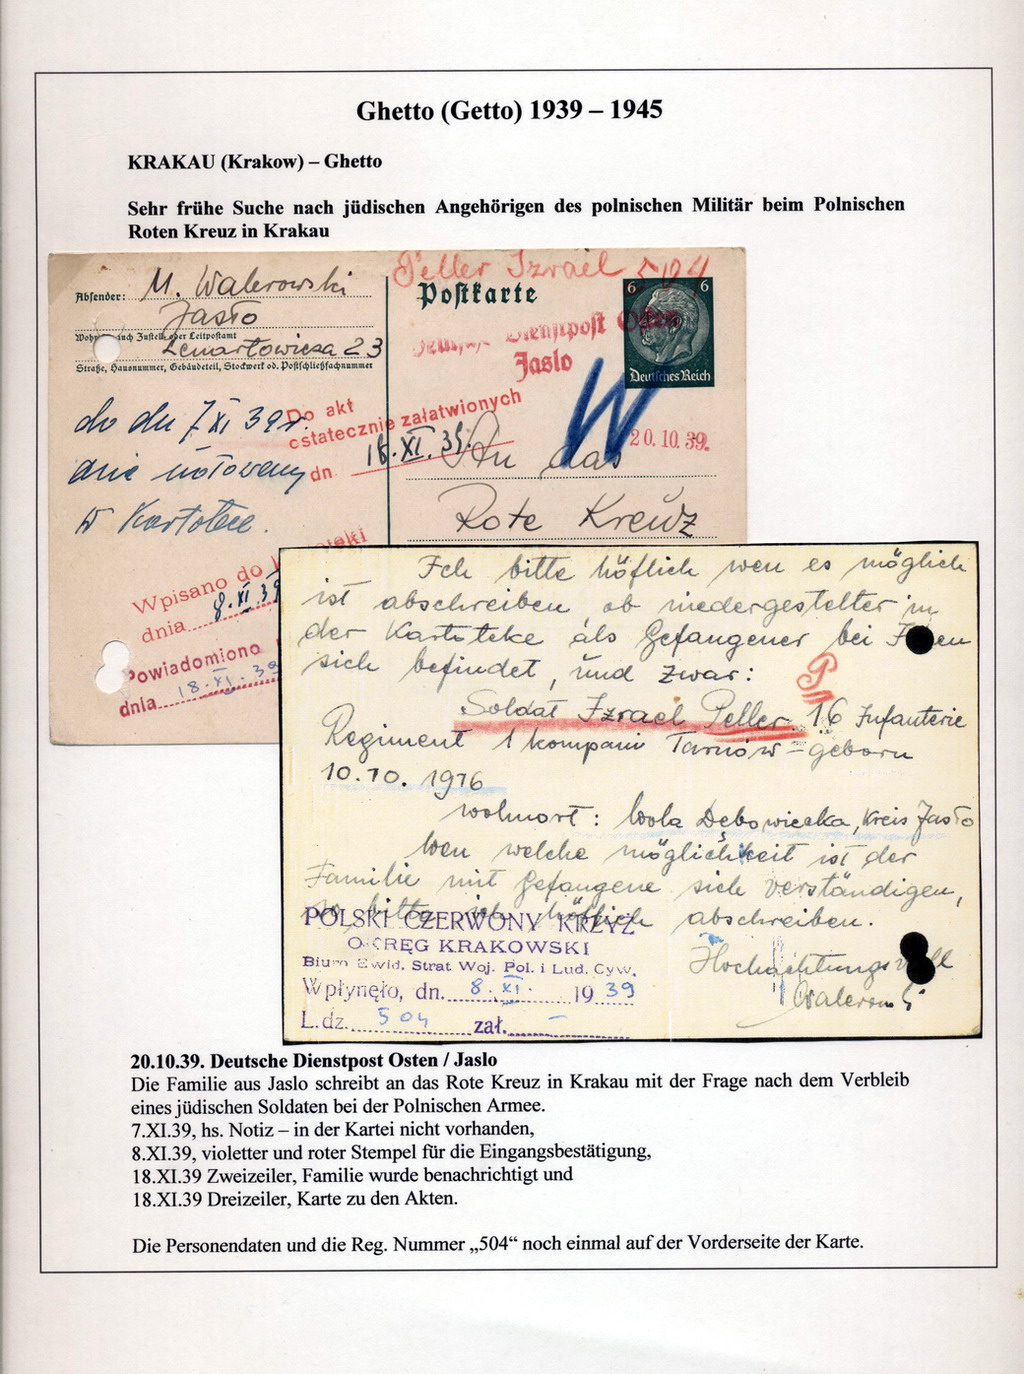 Ghetto (Getto) 1939 – 1945
KRAKAU (Krakow) – Ghetto
Sehr frühe Suche nach jüdischen Angehörigen des polnischen Militär beim Polnischen
Roten Kreuz in Krakau
Peller Izrael 504
Absender: M. Walerowski
Jasło
Wohnort, auch Zustell- oder Leitpostamt
Lenartowicza 23
Straße, Hausnummer, Gebäudeteil, Stockwerk od. Postschließfachnummer
Postkarte
6 6
Deutsches Reich
Deutsche Dienstpost Osten
Jaslo
20.10.39.
do dn 7 XI 39 r.
nie notowany
w Kartotece.
Do akt
ostatecznie załatwionych
dn 18.XI.39.
An das
Rote Kreuz
Wpisano do
dnia 8.XI 39
Powiadomiono
dnia 18.XI.39
Ich bitte höflich wen es möglich
ist abschreiben ob niedergestelter in
der Kartoteke als Gefangener bei
sich befindet, und zwar:
P
Soldat Izrael Peller 16 Infanterie
Regiment 1 kompani Tarnów – geborn
10.10. 1916
wohnort: Wola Dębowiecka, Kreis Jasło
Wen welche möglichkeit ist der
Familie mit Gefangene sich verständigen,
so bitte ich höflich abschreiben.
Hochachtungsvoll
POLSKI CZERWONY KRZYŻ
OKRĘG KRAKOWSKI
Biuro Ewid. Strat Woj. Pol. i Lud. Cyw.
Wpłynęło, dn. 8.XI. 1939
L. dz. 504 zał. –
20.10.39. Deutsche Dienstpost Osten / Jaslo
Die Familie aus Jaslo schreibt an das Rote Kreuz in Krakau mit der Frage nach dem Verbleib
eines jüdischen Soldaten bei der Polnischen Armee.
7.XI.39, hs. Notiz – in der Kartei nicht vorhanden,
8.XI.39, violetter und roter Stempel für die Eingangsbestätigung,
18.XI.39 Zweizeiler, Familie wurde benachrichtigt und
18.XI.39 Dreizeiler, Karte zu den Akten.
Die Personendaten und die Reg. Nummer „504“ noch einmal auf der Vorderseite der Karte.